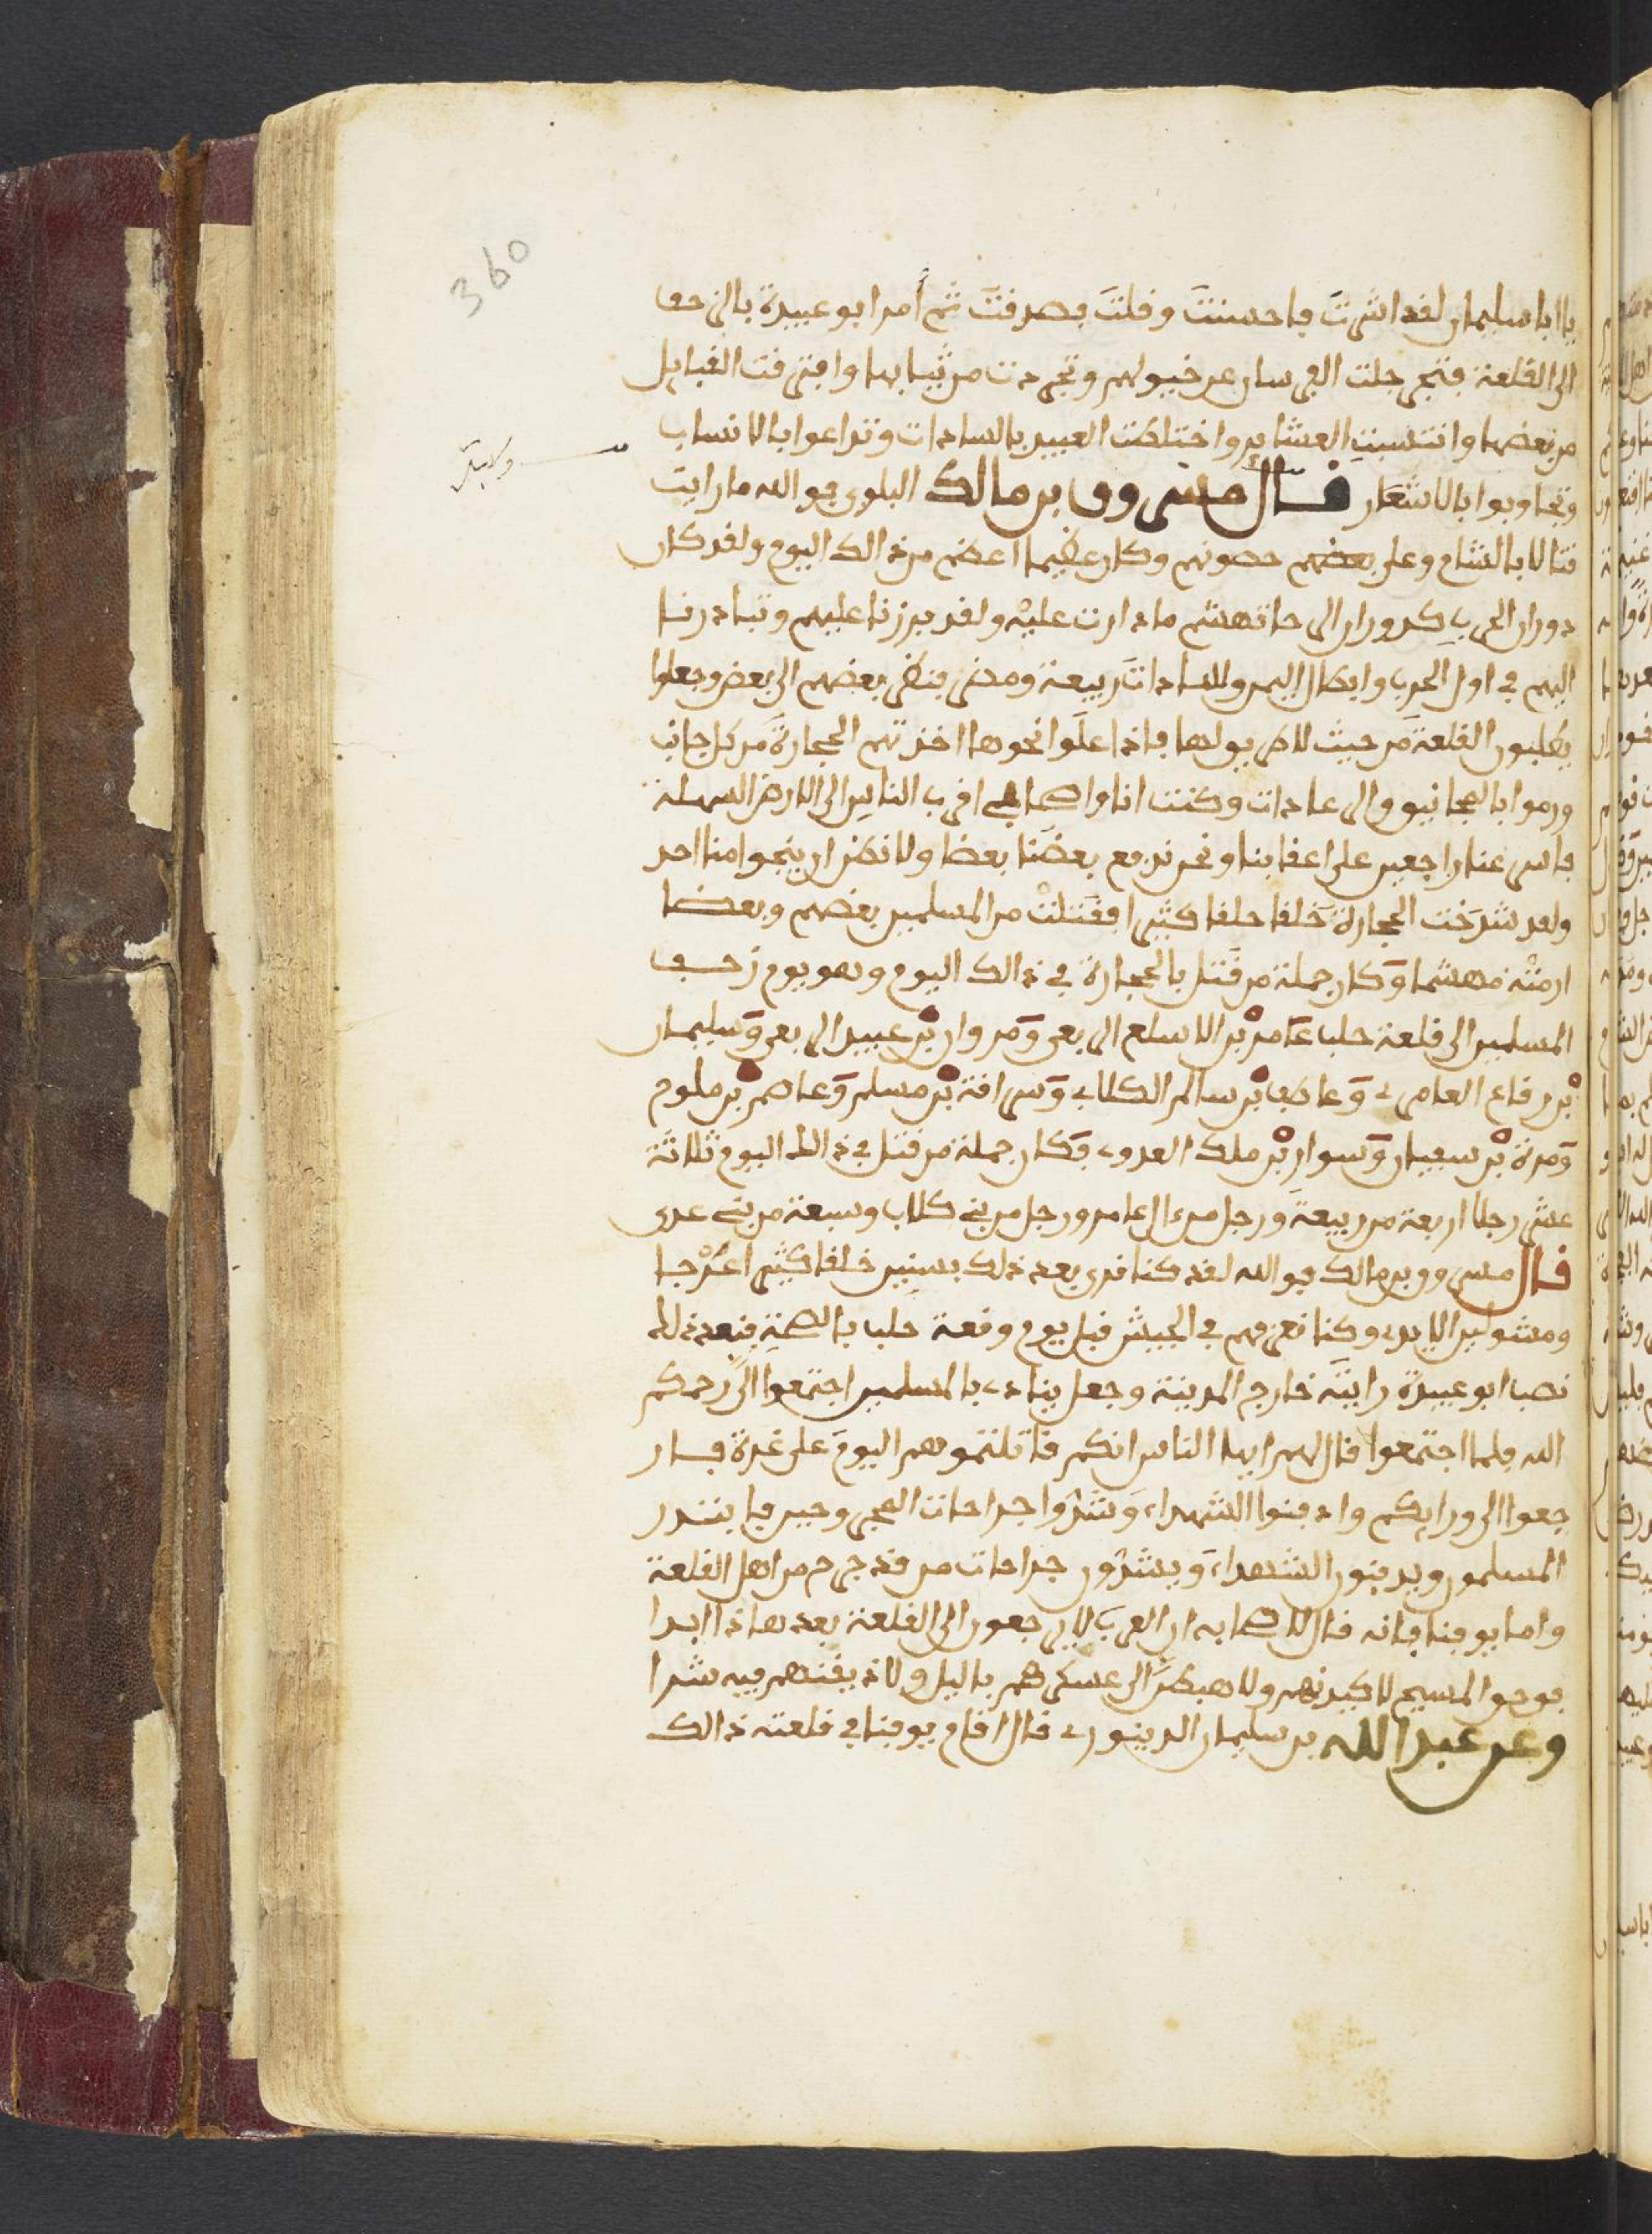 360
يا ابا سليمان لقد اشرت فاحسنت وقلت فصدقت ثم أمر ابو عبيدة بالزحف
الى القلعة فترجلت الفرسان عن خيولهم وتجردت من ثيابها وافترقت القبايل
من بعضها وانتسبت العشاير واختلطت العبيد بالسادات وتداعوا بالانساب
وتجاوبوا بالاشعار قال مسروق بن مالك البلوي فوالله ما رايت
قتالا بالشام وعلى بعضهم حصونهم وكان عظيما اعظم من ذالك اليوم ولقد كان
دوران الحرب كدوران الرحا تهشم ما دارت عليه ولقد برزنا عليهم وتبادرنا
اليهم في اول الحرب وابطال اليمن والسادات ربيعة ومضر ينظر بعضهم الى بعض وجعلوا
يطلبون القلعة من حيث لا طريق لها فاذا علوا نحوها اخذتهم الحجارة من كل جانب
ورموا بالمجانيق والعرادات وكنت انا واصحابي اقرب الناس الى الارض السهلة
فاسرعنا راجعين على اعقابنا ونحن ندفع بعضنا بعضا ولا نظن ان ينجوا منا احد
ولقد شدخت الحجارة خلقا خلقا كثيرا فقتلت من المسلمين بعضهم وبعضا
ازمنته مهشما وكان جملة من قتل بالحجارة في ذالك اليوم وهو يوم زحف
المسلمين الى قلعة حلب عامر بن الاسلع الربعي ومروان بن عبيد الربعي وسليمان
بن رفاع العامري وعاطف بن سالم الكلابي وسراقة بن مسلم وعاصم بن ملوم
ومرة بن سفيان وسوار بن ملك العدوي فكان جملة من قتل في ذالك اليوم ثلاثة
عشر رجلا اربعة من ربيعة ورجل من ءال عامر ورجل من بني كلاب وسبعة من بني عدي
قال مسروق بن مالك فوالله لقد كنا نرى بعد ذلك بسنين خلقا كثيرا عُرْجا
ومشولين الايدي وكنا نعرفهم في الجيش قبل يوم وقعة حلب بالصحة فبعد ذلك
نصب ابو عبيدة رايته خارج المدينة وجعل ينادي يا المسلمين اجتمعوا الي رحمكم
الله فلما اجتمعوا قال لهم ايها الناس انكم قاتلتموهم اليوم على غرة فار
جعوا الى ورايكم وادفنوا الشهداء وشدوا جراحات المجروحين فابتدر
المسلمون ويدفنون الشهداء ويشدون جراحات من قد جرح من اهل القلعة
واما يوقنا فانه قال لاصحابه ان العرب لا يرجعون الى القلعة بعد هاذا ابدا
فوحق المسيح لاكيدنهم ولاهبطن الى عسكرهم باليل ولاذيقنهم فيه شرا
وعن عبد الله بن سليمان الدينوري قال اقام يوقنا في قلعته ذالك